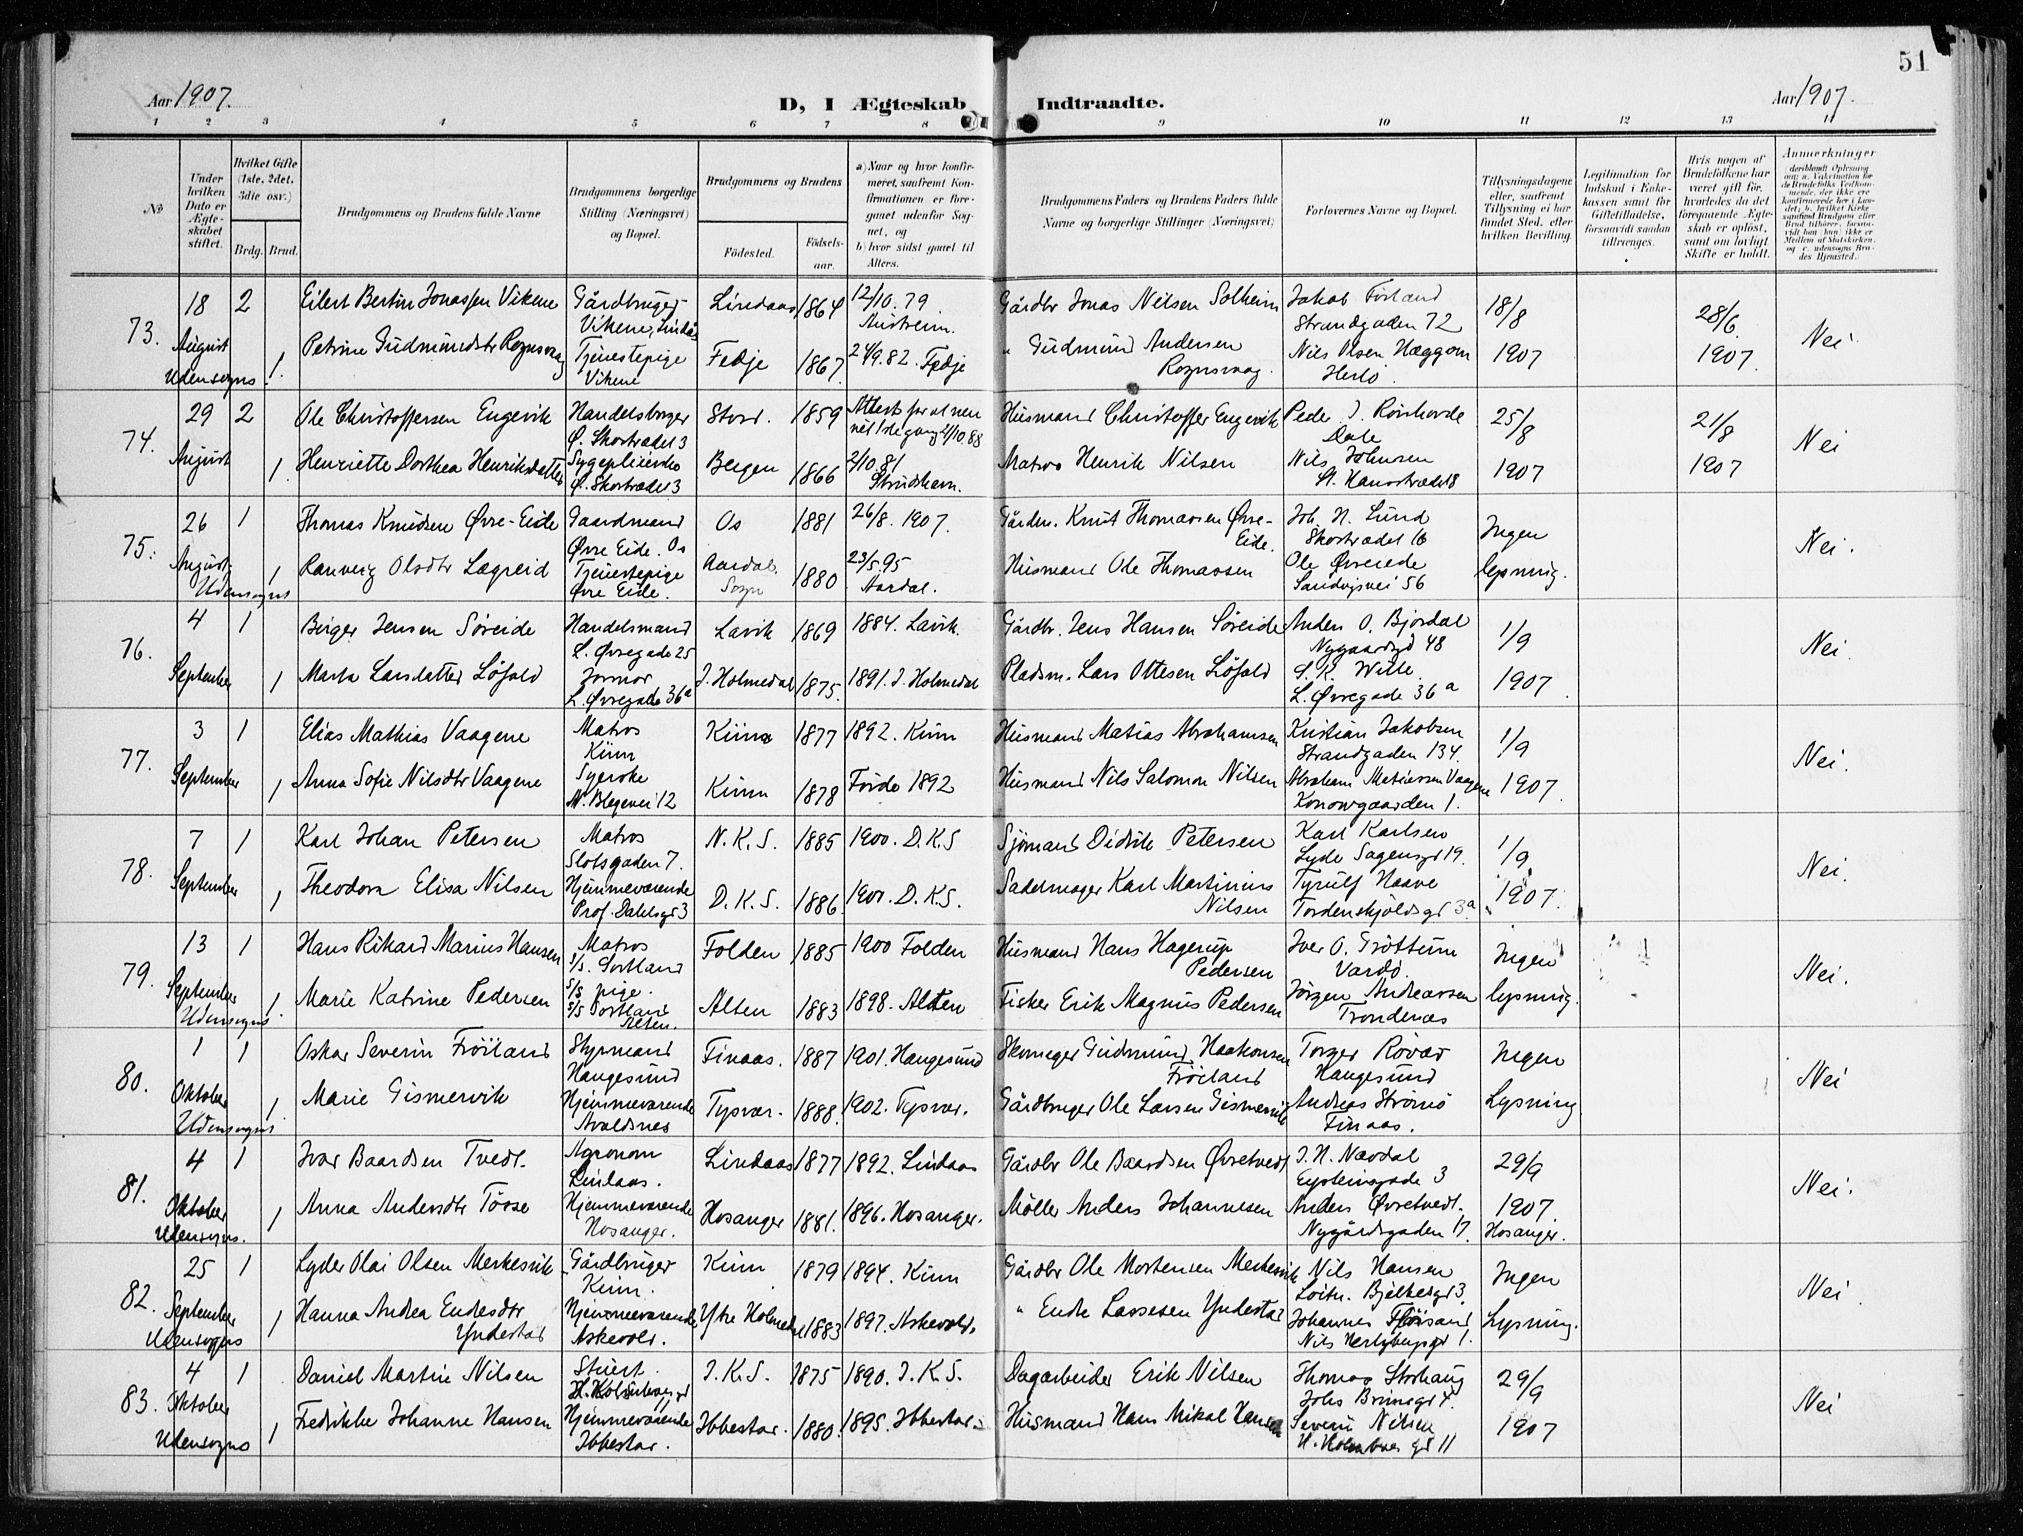 51
Aar 1907.
D, I Ægteskab Indtraadte.
Aar 1907.
1 2 3 4 5 6 7 8 9 10 11 12 13 14
No
Under hvilken Dato er Ægteskabet stiftet.
Hvilket Gifte (1ste, 2det, 3die osv.)
Brdg. Brud.
Brudgommens og Brudens fulde Navne
Brudgommens borgerlige Stilling (Næringsvei) og Bopæl.
Brudgommens og Brudens
Fødested. Fødselsaar.
a) Naar og hvor konfirmeret, saafremt Konfirmationen er foregaaet udenfor Sognet, og
b) hvor sidst gaaet til Alters.
Brudgommens Faders og Brudens Faders fulde Navne og borgerlige Stillinger (Næringsvei)
Forlovernes Navne og Bopæl.
Tillysningsdagene eller, saafremt Tillysning ei har fundet Sted, efter hvilken Bevilling.
Legitimation for Indskud i Enkekassen samt for Giftetilladelse, forsaavidt saadan tiltrænges.
Hvis nogen af Brudefolkene har været gift før, hvorledes da det foregaaende Ægteskab er opløst, samt om lovligt Skifte er holdt.
Anmerkninger
73. 18 2 Eilert Bertin Jonassen Vikene Gårdbruger Lindaas 1864 12/10.79 Gårdbr Jonas Nilsen Solheim Jakob Forland 18/8 28/6 Nei
Vikene, Lindås Austreim. Strandgaden 72
August 1. Petrine Gudmundsdtr Rognsvag Tjenestepige Fedje 1867 24/9.82. Fedje " Gudmund Andersen Nils Olsen Hæggom 1907 1907.
Udensogns. Vikene Rognsvag. Herlö.
74. 29 2 Ole Christoffersen Engevik Handelsborger Stord. 1859 Husmand Christoffer Engevik Peder J. 25/8 21/8 Nei
Ø. Skostrædet 3 Dale
August 1. Henriette Dorthea Henriksdatter Bergen 1866 2/10 81 Matros Henrik Nilsen Nils Johnsen 1907 1907
Ø. Skostrædet 3 St. Hansstrædet 8
75. 26 1 Thomas Knudsen Øvre-Eide Gaardmand Os 1881 26/8. 1907. Gårdm. Knut Thomassen Øvre-Eide. Joh. N. Lund Ingen Nei.
Øvre Eide. Os Skostrædet 16
August 1 Ranveig Olsdtr Lægreid Tjenestepige Aardal. 1880 23/5.95 Husmand Ole Thomassen Ole Øvreeide lysning.
Udensogns Øvre Eide. Sogn Aardal. Sandvigsvei 56
76. 4 1 Birger Jensen Søreide Handelsmand Lavik 1869 1884. Lavik. Gårdbr. Jens Hansen Søreide Anders O. Bjordal 1/9 Nei.
L. Øvregade 25 Nygaardsgd 48
September 1 Marta Larsdatter Löfald Jormor I. Holmedal 1875. 1891. I. Holmedal Pladsm. Lars Ottesen Löfald S. K. Wille 1907
L. Øvregade 36a L. Øvregade 36a
77. 3 1 Elias Mathias Vaagene Matros Kinn 1877 1892. Kinn Husmand Matias Abrahamsen Kristian Jakobsen 1/9 Nei.
Kinn Strandgaden 134.
September 1 Anna Sofie Nilsdtr Vaagene Syerske Kinn 1878 Förde 1892 Husmand Nils Salomon Nilsen Abraham Matiassen Vaagene 1907.
N. Blegevei 12 Konowgaarden 1.
78. 7 1 Karl Johan Petersen Matros N. K. S. 1885 1900. D.K.S Sjömand Didrik Petersen Karl Karlsen 1/9 Nei.
Slotsgaden 7. Lyde Sagensgd 19.
September 1 Theodora Elisa Nilsen Hjemmeværende D. K. S. 1886. 1901. D.K.S. Sadelmager Karl Martinius Nilsen Tyrulf Naave 1907.
Prof. Dahlsgd 3 Tordenskjöldsgd 3a
79. 13 1 Hans Rikard Marius Hansen Matros Folden 1885 1900 Folden Husmand Hans Hagerup Pedersen Iver O. Tröttum Ingen Nei.
s/s. Sortland Vardö.
September 1. Marie Katrine Pedersen s/s pige. Alten 1883 1898. Alten Fisker Erik Magnus Pedersen Jörgen Andreassen lysning.
Udensogns. s/s Sortland Trondenæs
80. 1 1 Oskar Severin Fröiland Styrmand Finaas. 1887 1901. Haugesund Skomager Gudmund Haakonsen Fröiland Torger Rövær Ingen Nei
Haugesund Haugesund
Oktober 1 Marie Gismervik Hjemmeværende Tysvær. 1888. 1902. Tysvær. Gårdbruger Ole Larsen Gismervik Andreas Strömö Lysning
Udensogns Avaldsnes Finaas.
81. 4 1 Ivar Baardsen Tvedt. Agronom Lindaas 1877 1892. Lindaas Gårdbr Ole Baardsen Øvretvedt J. N. Nævdal 29/9 Nei.
Lindaas. Eysteinsgade 3
Oktober 1 Anna Andersdtr Tösse Hjemmeværende Hosanger 1881. 1896. Hosanger. Möller Anders Johannesen Anders Øvretvedt. 1907
Udensogns. Hosanger. Nygårdsgaden 17. Hosanger.
82. 25 1 Lyder Olai Olsen Merkesvik Gårdbruger Kinn 1879 1894. Kinn Gårdbr Ole Mortensen Merkesvik Nils Hansen Ingen Nei
Kinn. Löitn. Bjelkesgd 3.
September 1 Hanna Andrea Endresdtr Yndestad Hjemmeværende Ytre Holmedal 1883 1897. Askevold. " Endre Lassesen Yndestad Johannes Flöisand Lysning.
Udensogns Askevold. Nils Hertzbergsgd 1.
83. 4 1 Daniel Martin Nilsen Stuert. J. K. S. 1875 1890. J. K. S. Dagarbeider Erik Nilsen Thomas Storhaug 29/9 Nei
H. Holmboesgd 11 Johs Brunsgt 4.
Oktober 1 Fredrikke Johanne Hansen Hjemmeværende Ibbestad. 1880. 1895. Ibbestad. Husmand Hans Mikal Hansen Severin Nilsen 1907
Udensogns Ibbestad. H. Holmboes gd 11